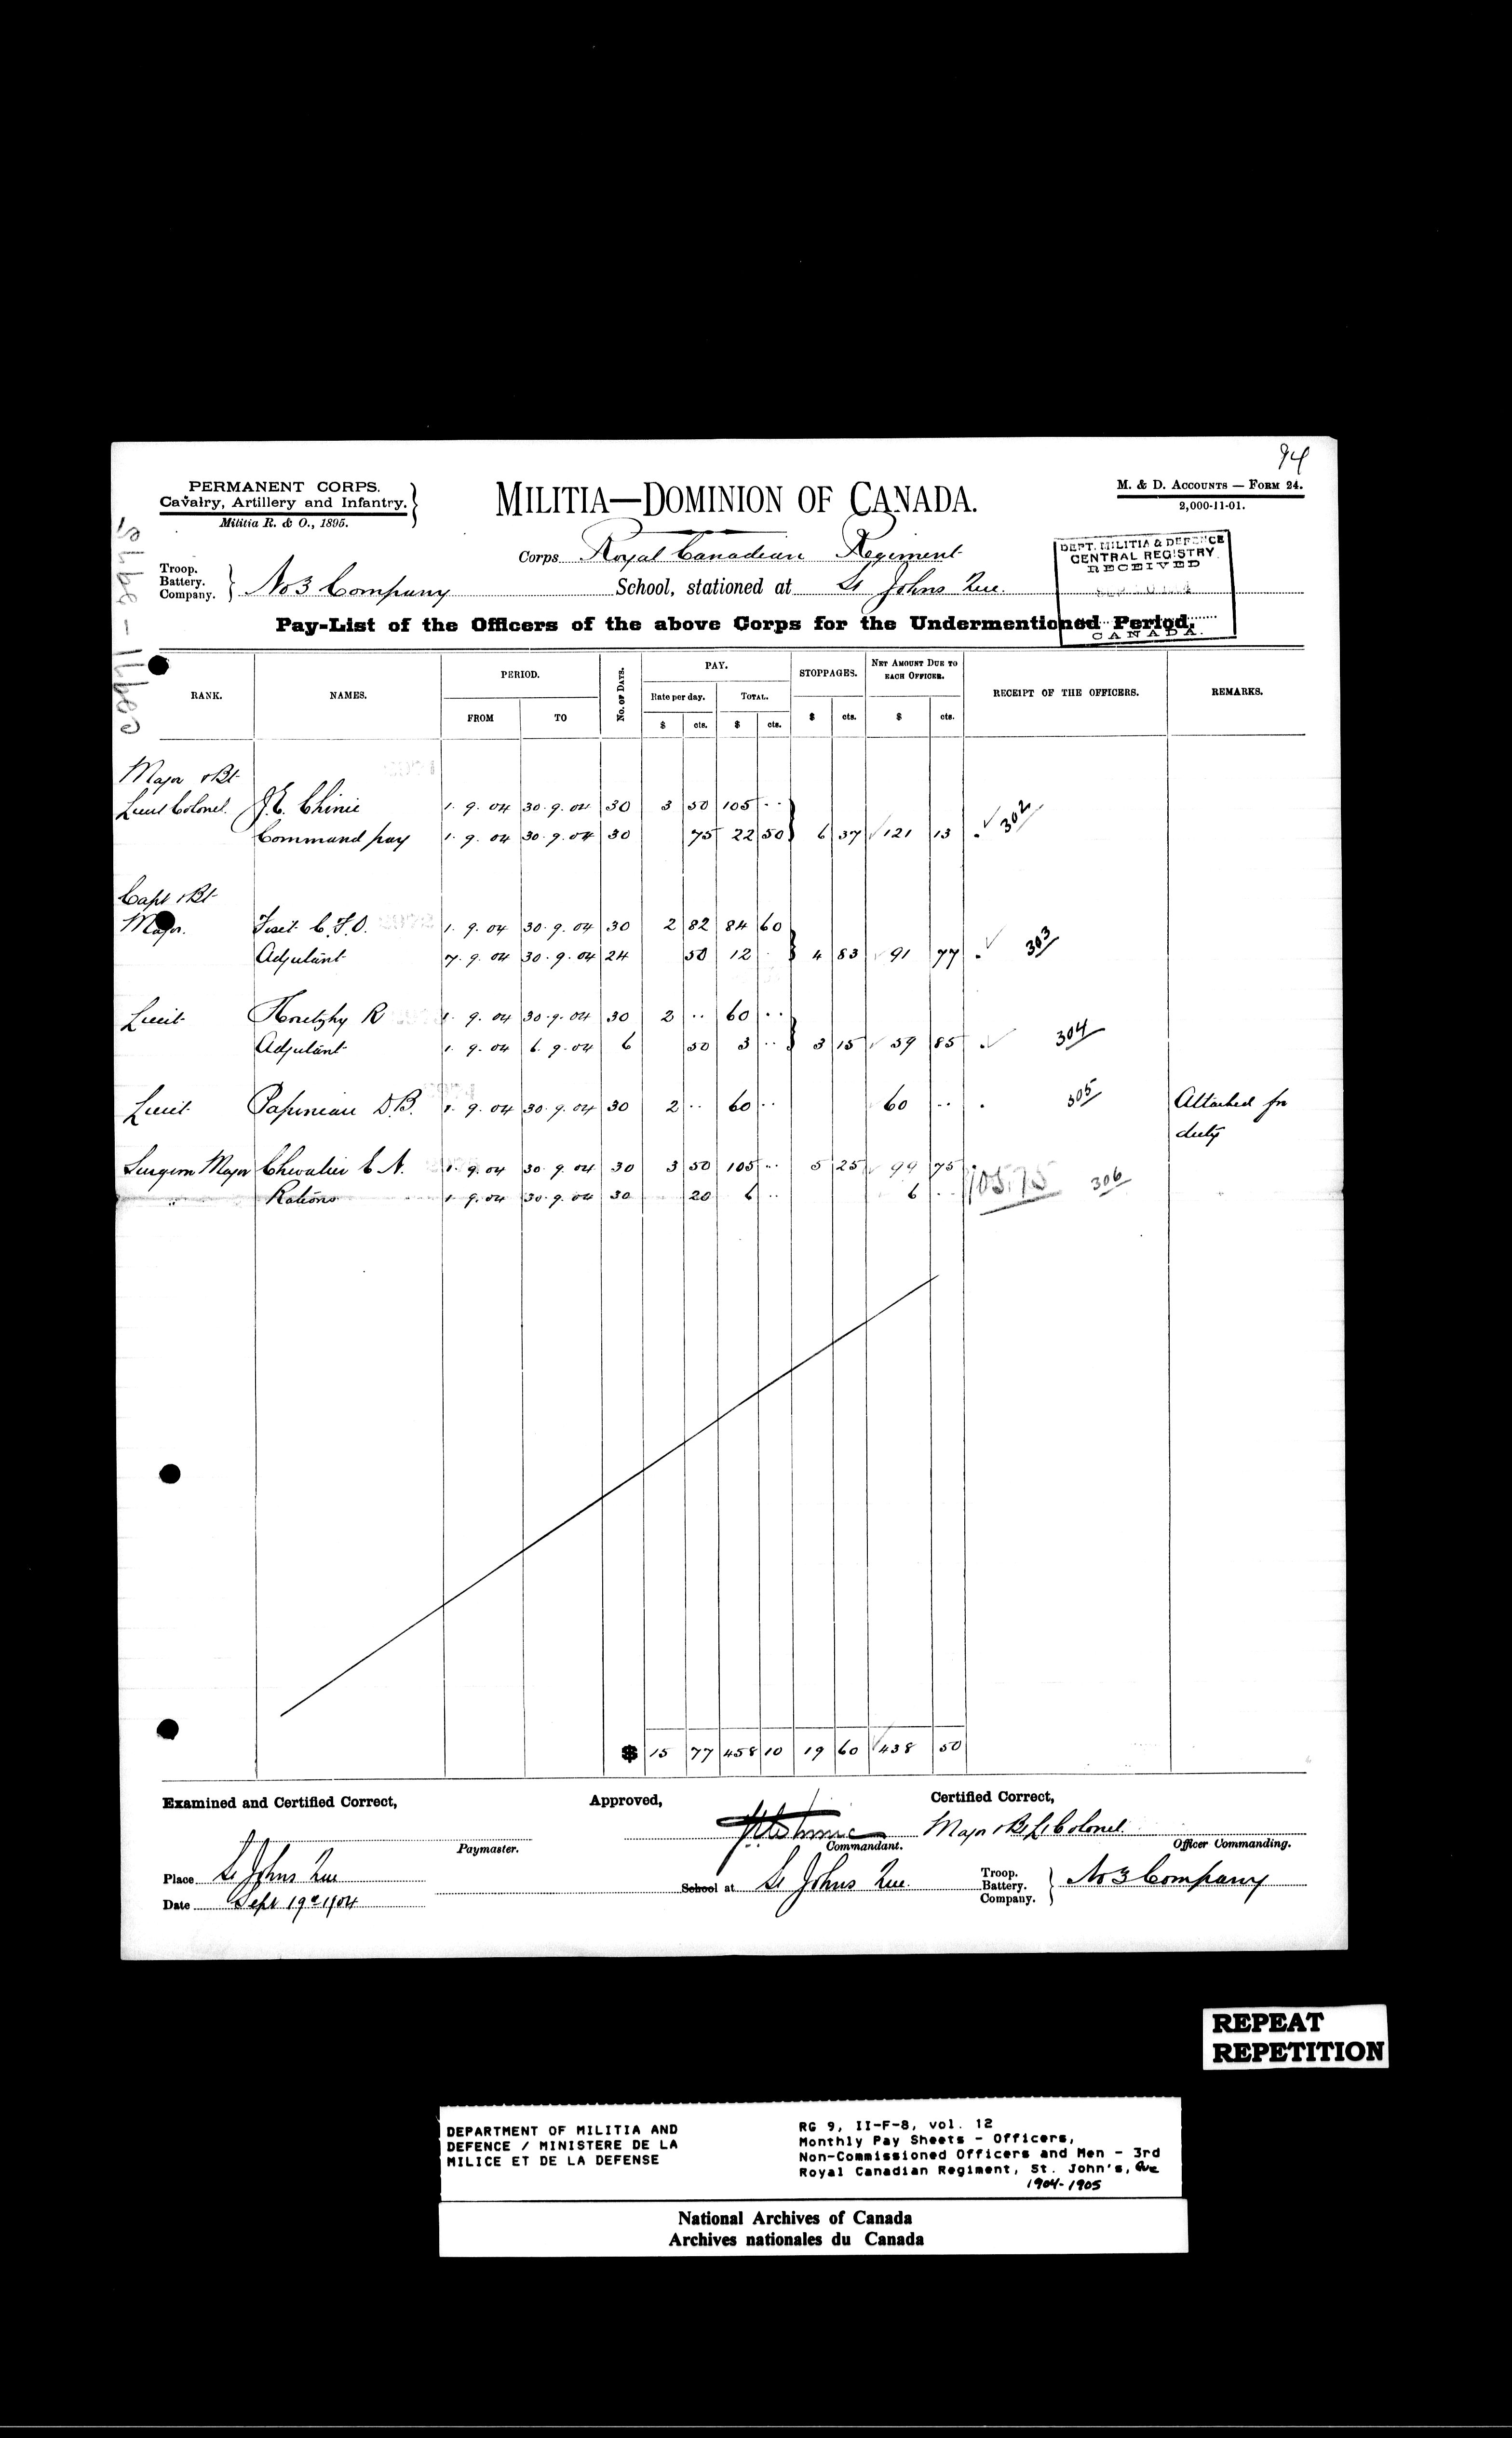 94
PERMANENT CORPS.
Cavalry, Artillery and Infantry.
Militia R. & O., 1895.
MILITIA—DOMINION OF CANADA.
M. & D. ACCOUNTS — FORM 24.
2,000-11-01.
Corps Royal Canadian Regiment
DEPT. MILITIA & DEFENCE
CENTRAL REGISTRY
RECEIVED
CANADA.
Troop.
Battery.
Company. } No 3 Company School, stationed at St Johns Que.
Pay-List of the Officers of the above Corps for the Undermentioned Period.
RANK. NAMES. PERIOD. FROM TO No. OF DAYS. PAY. Rate per day. $ cts. TOTAL. $ cts. STOPPAGES. $ cts. NET AMOUNT DUE TO EACH OFFICER. $ cts. RECEIPT OF THE OFFICERS. REMARKS.
Major & Bt
Lieut Colonel. J.E. Chinic 1. 9. 04 30. 9. 04 30 3 50 105 ..
Command pay 1. 9. 04 30. 9. 04 30 75 22 50 } 6 37 ✓ 121 13 ✓ 302
Capt & Bt
Major. C.F.O. 1. 9. 04 30. 9. 04 30 2 82 84 60
Adjutant 7. 9. 04 30. 9. 04 24 50 12 . } 4 83 ✓ 91 77 ✓ 303
Lieut R 1. 9. 04 30. 9. 04 30 2 .. 60 ..
Adjutant 1. 9. 04 6. 9. 04 6 50 3 .. } 3 15 ✓ 59 85 ✓ 304
Lieut Papineau D.B. 1. 9. 04 30. 9. 04 30 2 .. 60 .. 60 .. 305 Attached for
duty
Surgeon Major Chevalier E N. 1. 9. 04 30. 9. 04 30 3 50 105 .. 5 25 ✓ 99 75
" Rations 1. 9. 04 30. 9. 04 30 20 6 .. 6 .. 105.75 306
$ 15 77 458 10 19 60 ✓ 438 50
Examined and Certified Correct, Approved, Certified Correct,
Paymaster. Commandant. Major & Bt Lt Colonel. Officer Commanding.
Place St Johns Que
School at St Johns Que. Troop.
Battery.
Company. } No 3 Company
Date Sept 19th 1904
REPEAT
REPETITION
DEPARTMENT OF MILITIA AND
DEFENCE / MINISTERE DE LA
MILICE ET DE LA DEFENSE
RG 9, II-F-8, vol. 12
Monthly Pay Sheets - Officers,
Non-Commissioned Officers and Men - 3rd
Royal Canadian Regiment, St. John's, Que
1904-1905
National Archives of Canada
Archives nationales du Canada